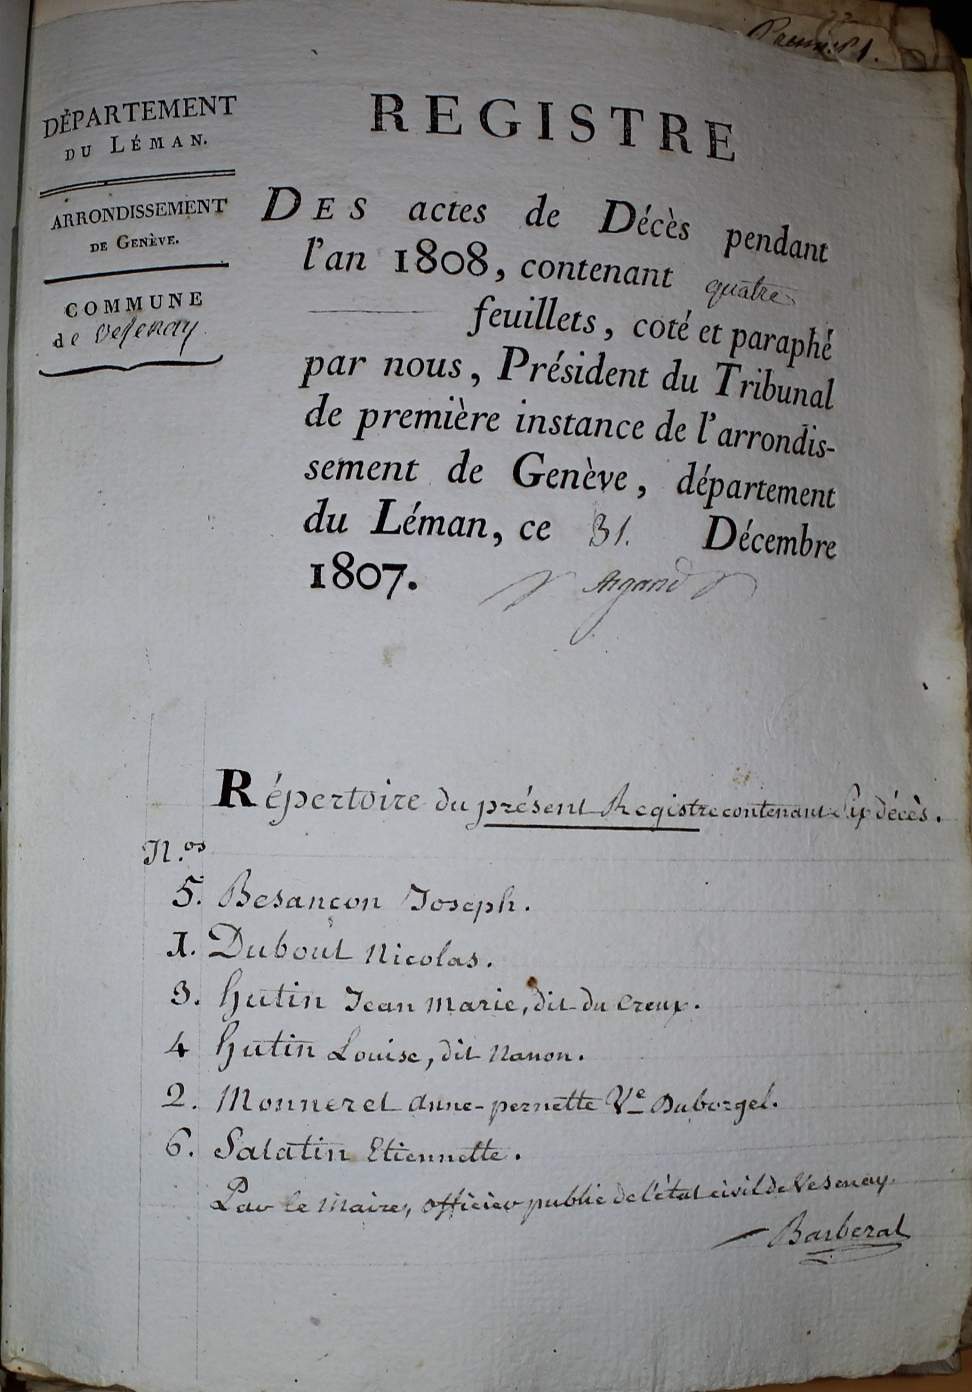 Premier 1.
DÉPARTEMENT
DU LÉMAN.
ARRONDISSEMENT
DE GENÈVE.
COMMUNE
de Vesenay
REGISTRE
DES actes de Décès pendant
l'an 1808, contenant quatre
feuillets, coté et paraphé
par nous, Président du Tribunal
de première instance de l'arrondis-
sement de Genève, département
du Léman, ce 31. Décembre
1807. Argand
Répertoire du présent Registre contenant Six décès.
N.os
5. Besançon Joseph.
1. Duboul Nicolas.
3. Hutin Jean Marie, dit du Creux.
4 Hutin Louise, dit Nanon.
2. Monneret Anne-pernette Ve Duborgel.
6. Salatin Etiennette.
Par le Maire, officier public de l'état civil de Vesenay.
Barberat